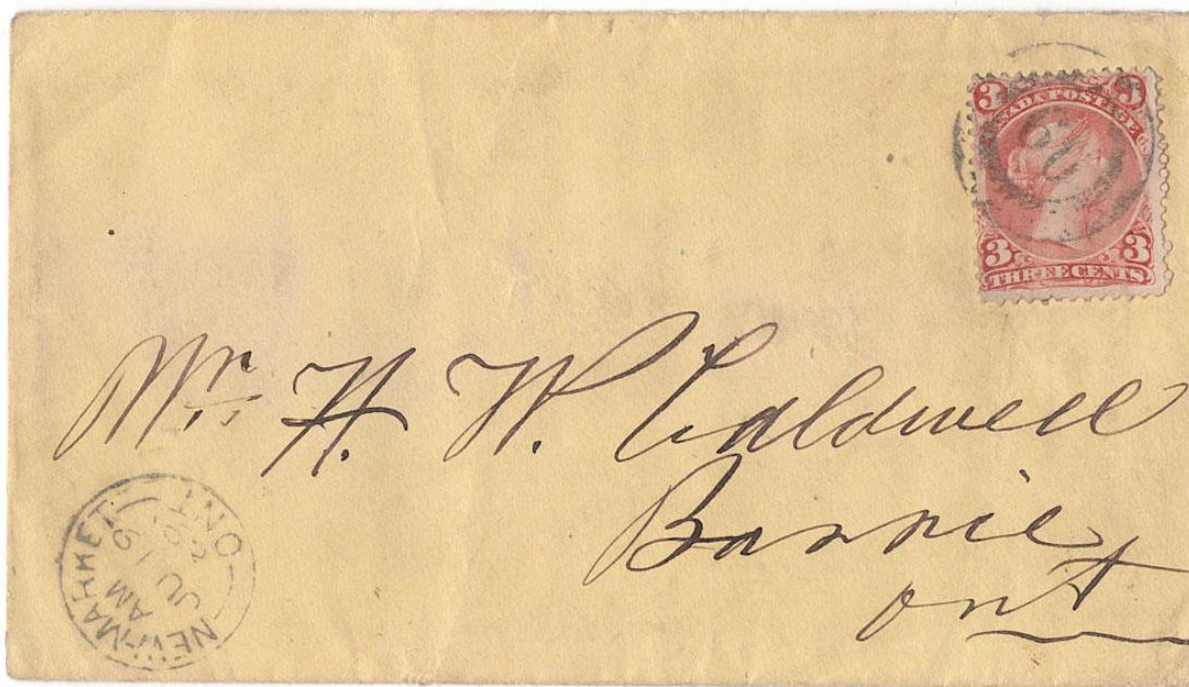 3 CANADA POSTAGE 3
3 3
THREE CENTS
Mr. H. W. Caldwell
Barrie
Ont
NEWMARKET
ONT
AM
JU 19